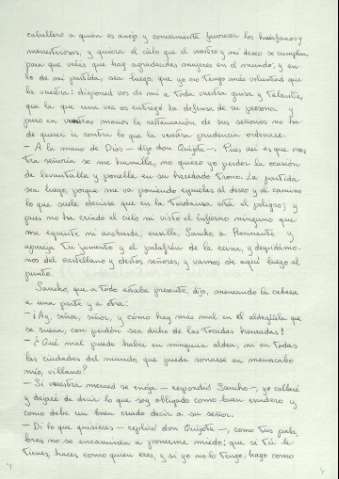 caballero a quien es anejo y concerniente favorecer los huérfanos y
menesterosos, y quiera el cielo que el vuestro y mi deseo se cumplan,
para que veáis que hay agradecidas mujeres en el mundo; y en
lo de mi partida, sea luego, que yo no tengo más voluntad que
la vuestra: disponed vos de mí a toda vuestra guisa y talante,
que la que una vez os entregó la defensa de su persona y
puso en vuestras manos la restauración de sus señoríos no ha
de querer ir contra lo que la vuestra prudencia ordenare.
— A la mano de Dios — dijo don Quijote —. Pues así es que vues
tra señoría se me humilla, no quiero yo perder la ocasión
de levantalla y ponella en su heredado trono. La partida
sea luego, porque me va poniendo espuelas al deseo y al camino
lo que suele decirse que en la tardanza está el peligro; y
pues no ha criado el cielo ni visto el infierno ninguno que
me espante ni acobarde, ensilla, Sancho, a Rocinante y
apareja tu jumento y el palafrén de la reina, y despidámo-
nos del castellano y destos señores, y vamos de aquí luego al
punto.
Sancho, que a todo estaba presente, dijo, meneando la cabeza
a una parte y a otra:
— ¡Ay, señor, señor, y cómo hay más mal en el aldegüela que
se suena, con perdón sea dicho de las tocadas honradas!
— ¿Qué mal puede haber en ninguna aldea, ni en todas
las ciudades del mundo, que pueda sonarse en menoscabo
mío, villano?
— Si vuestra merced se enoja — respondió Sancho —, yo callaré
y dejaré de decir lo que soy obligado como buen escudero y
como debe un buen criado decir a su señor.
— Di lo que quisieres — replicó don Quijote —, como tus pala
bras no se encaminen a ponerme miedo; que si tú le
tienes, haces como quien eres, y si yo no lo tengo, hago como